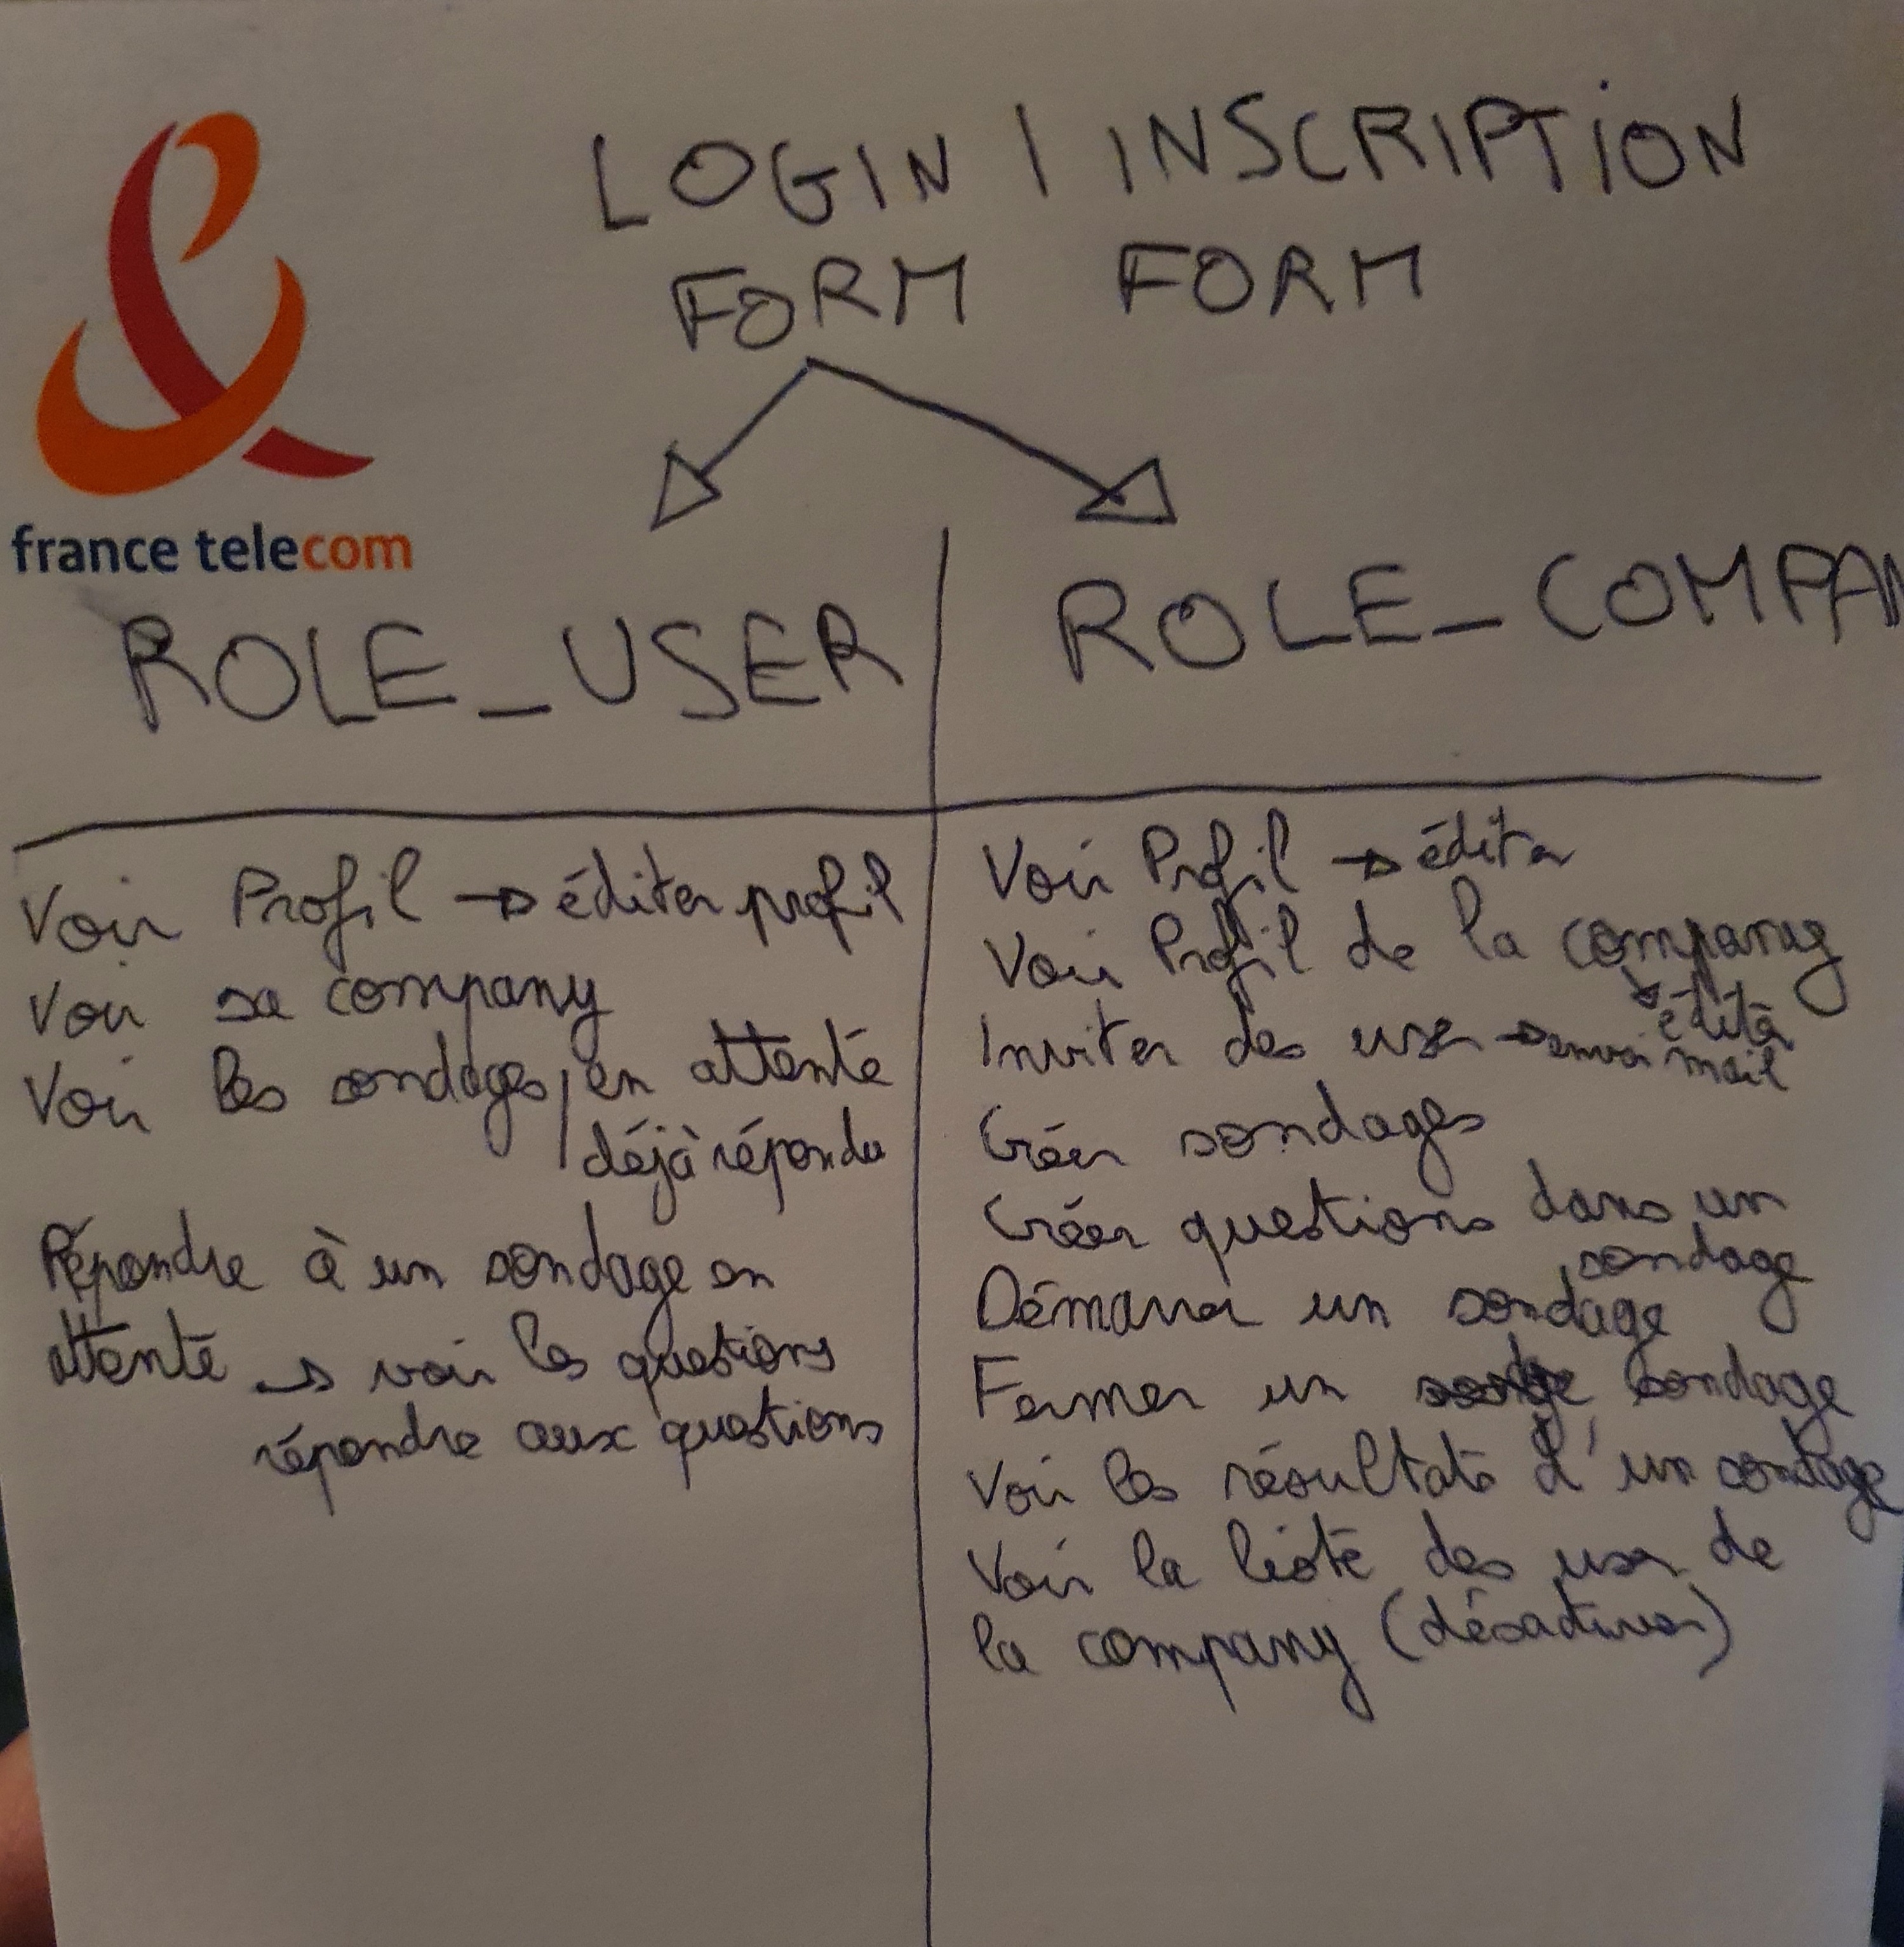 LOGIN | INSCRIPTION
FORM FORM
france telecom
ROLE_USER
Voir Profil → éditer profil
Voir sa company
Voir les sondages / en attente
déjà répondu
Répondre à un sondage en
attente → voir les questions
répondre aux questions
ROLE_COMPAN
Voir Profil → éditer
Voir Profil de la company
→ éditer
Inviter des user → envoi mail
Créer sondages
Créer questions dans un
sondage
Démarrer un sondage
Fermer un sondage
Voir les résultats d'un sondage
Voir la liste des user de
la company (désactiver)